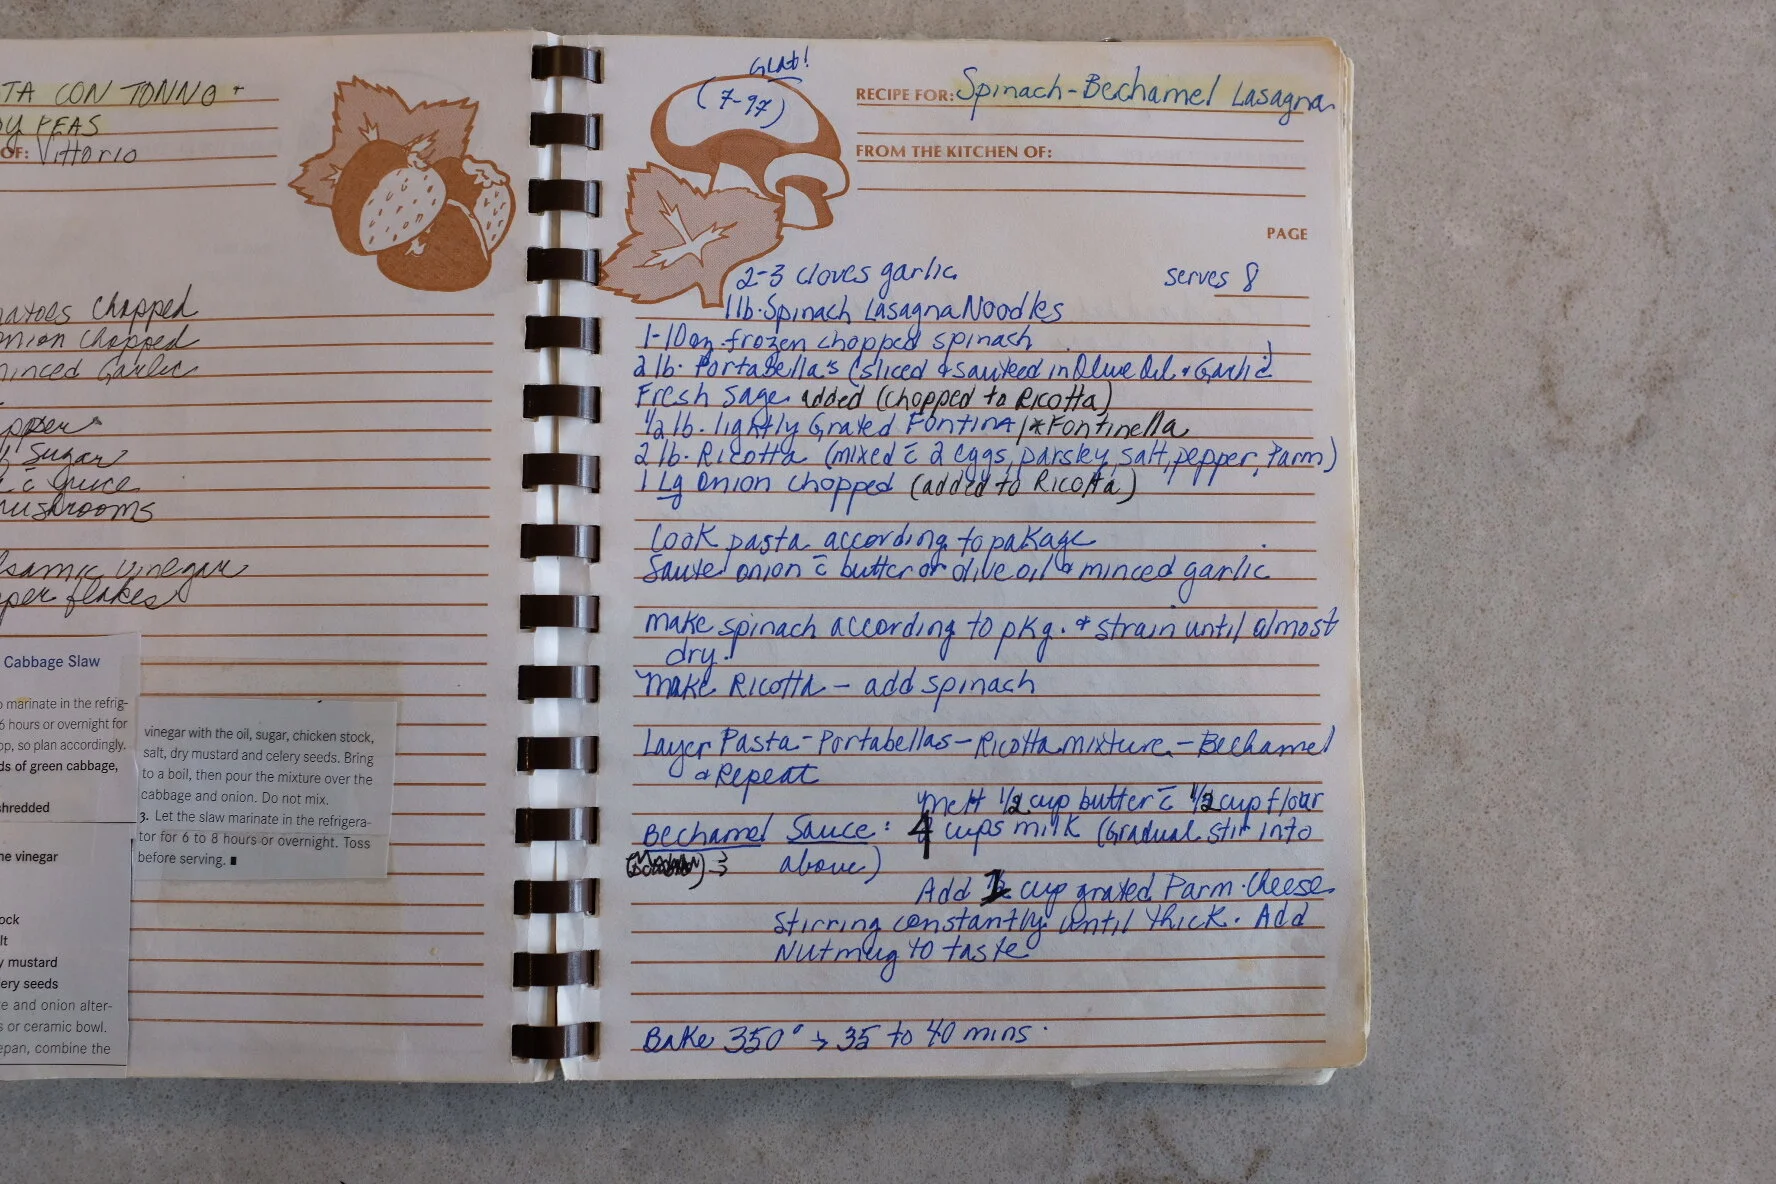 TA CON TONNO +
PEAS
OF: Vittorio
atoes Chopped
onion Chopped
minced Garlic
pper
Sugar
c̄ Juice
mushrooms
lsamic vinegar
per flakes
Cabbage Slaw
o marinate in the refrig-
6 hours or overnight for
op, so plan accordingly.
ds of green cabbage,
shredded
ne vinegar
ock
lt
y mustard
ery seeds
e and onion alter-
s or ceramic bowl.
epan, combine the
vinegar with the oil, sugar, chicken stock,
salt, dry mustard and celery seeds. Bring
to a boil, then pour the mixture over the
cabbage and onion. Do not mix.
3. Let the slaw marinate in the refrigera-
tor for 6 to 8 hours or overnight. Toss
before serving. ■
(7-97)
RECIPE FOR: Spinach-Bechamel Lasagna
FROM THE KITCHEN OF:
PAGE
2-3 cloves garlic
serves 8
1 lb. Spinach Lasagna Noodles
1-10oz frozen chopped spinach
2 lb. Portabella's (sliced & sauteed in Olive Oil & Garlic)
Fresh Sage added (chopped to Ricotta)
1/2 lb. lightly Grated Fontina/*Fontinella
2 lb. Ricotta (mixed c̄ 2 eggs, parsley, salt, pepper, Parm)
1 Lg Onion chopped (added to Ricotta)
Cook pasta according to pakage
Saute onion c̄ butter or olive oil & minced garlic
Make spinach according to pkg. & strain until almost
dry.
Make Ricotta - add spinach
Layer Pasta - Portabellas - Ricotta mixture - Bechamel
& Repeat
Melt 1/2 cup butter c̄ 1/2 cup flour
Bechamel Sauce: 4 cups milk (Gradual stir into
above)
Add cup grated Parm. Cheese
Stirring constantly until thick. Add
Nutmeg to taste
Bake 350° → 35 to 40 mins.